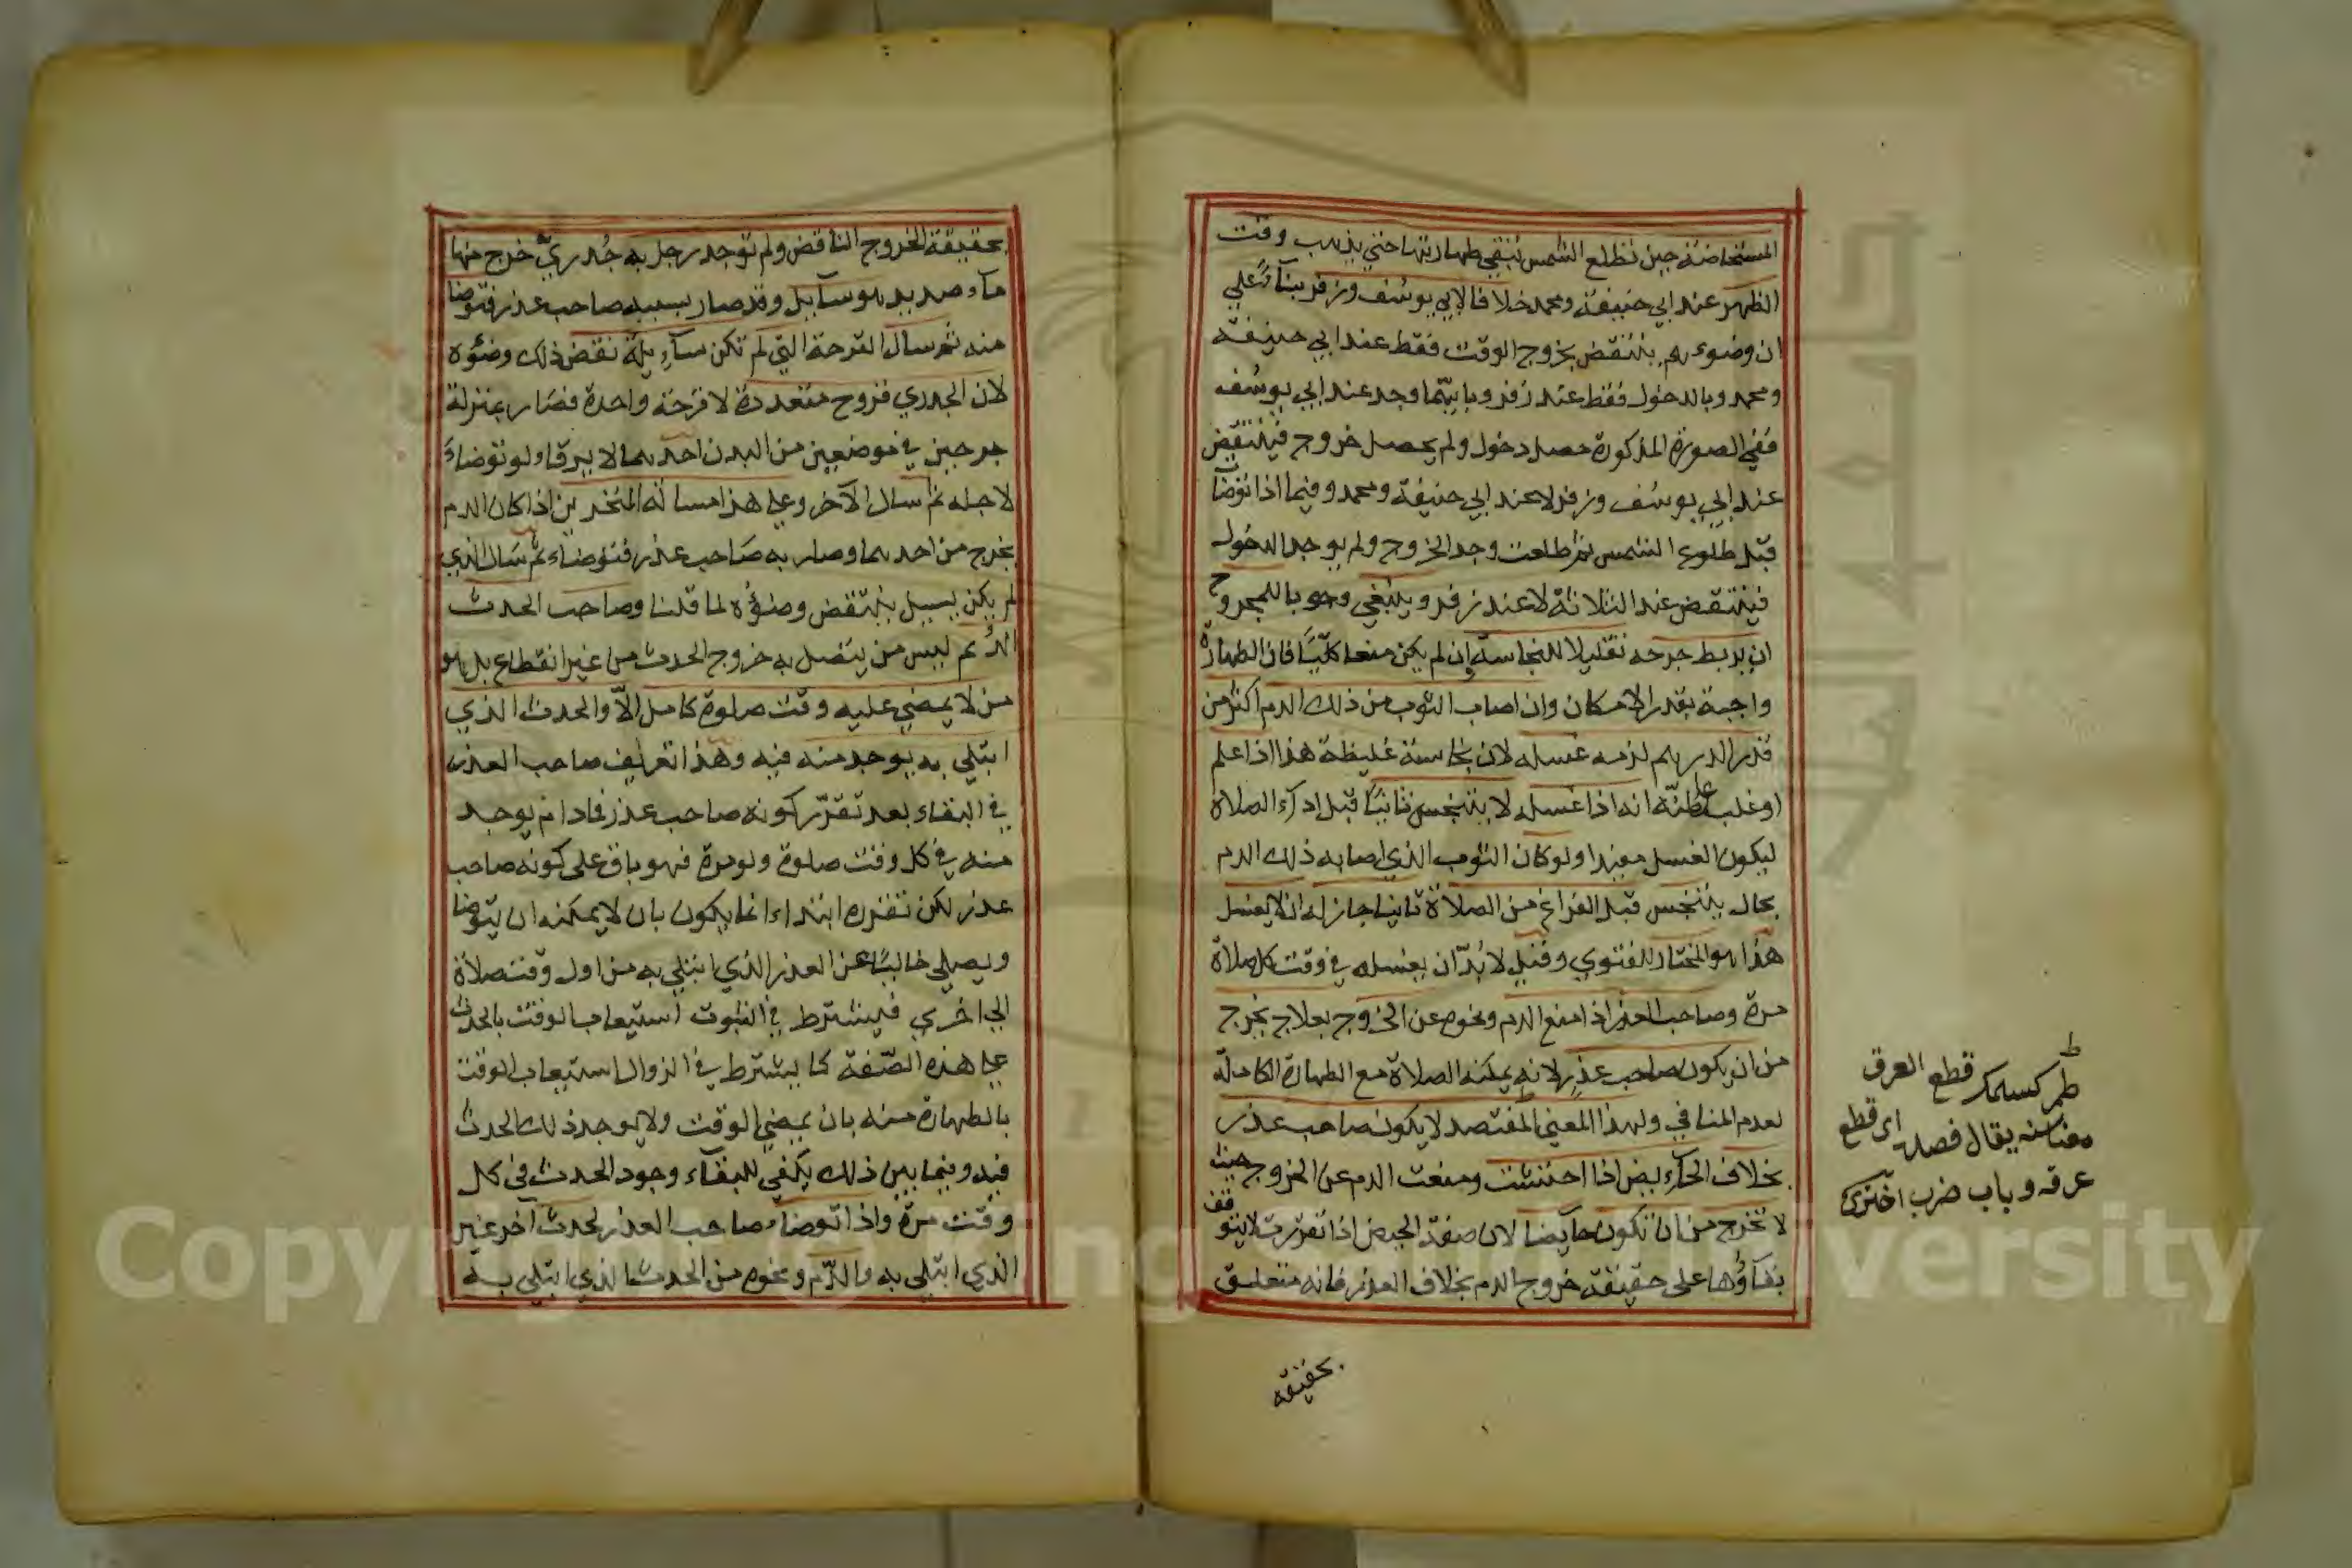 المستحاضة حين تطلع الشمس تبقى طهارتها حتى يذهب وقت
الظهر عند ابي حنيفة ومحمد خلافا لابي يوسف وزفر بناء على
ان وضوءهم ينتقض بخروج الوقت فقط عند ابي حنيفة
ومحمد وبالدخول فقط عند زفر وبايهما وجد عند ابي يوسف
ففي الصورة المذكورة حصل دخول ولم يحصل خروج فينتقض
عند ابي يوسف وزفر لا عند ابي حنيفة ومحمد وفيما اذا توضأ
قبل طلوع الشمس ثم طلعت وجد الخروج ولم يوجد الدخول
فينتقض عند الثلاثة لا عند زفر وينبغي وجوبا للمجروح
ان يربط جرحه تقليلا للنجاسة إن لم يكن منعا كلّيّا فان الطهارة
واجبة بقدر الامكان وان اصاب الثوب من ذلك الدم اكثر من
قدر الدرهم لزمه غسله لان نجاسته غليظة هذا اذا علم
او غلب على ظنّه انه اذا غسله لا يتنجس ثانيا قبل ادآء الصلاة
ليكون الغسل مفيدا ولو كان الثوب الذي اصابه ذلك الدم
بحال يتنجس قبل الفراغ من الصلاة ثانيا جاز له ان لا يغسل
هذا هو المختار للفتوي وقيل لا بدّ ان يغسله في وقت كل صلاة
مرة وصاحب العذر اذا منع الدم ونحوه عن الخروج بعلاج يخرج
من ان يكون صاحب عذر لانه يمكنه الصلاة مع الطهارة الكاملة
لعدم المنافي ولهذا المعنى المفتصد لا يكون صاحب عذر
بخلاف الحآئض اذا احتشت ومنعت الدم عن الخروج حيث
لا تخرج من ان تكون حآيضا لان صفة الحيض اذا تقررت لا يتوقف
بقآؤها على حقيقة خروج الدم بخلاف العذر فانه متعلق
بحقيقة
ط
قطع العرق
اي قطع
معناسه يقال فصد
عرقه وباب ضرب اختري
بحقيقة الخروج الناقض ولم توجد رجل به جُدريّ خرج منها
مآء صديد هو سآيل وقد صار بسببه صاحب عذر فتوضا
منه ثم سال القرحة التي لم تكن سآيلة نقض ذلك وضوءه
لان الجدري قروح متعددة لا قرحة واحدة فصار بمنزلة
جرحين في موضعين من البدن احدهما لا يرقاء ولو توضاء
لاجله ثم سال الآخر وعلى هذا مسالة المنخرين اذا كان الدم
يخرج من احدهما وصار به صاحب عذر فتوضاء ثم سال الذي
لم يكن يسيل ينتقض وضوؤه لما قلنا وصاحب الحدث
الدّآئم ليس من يتصل به خروج الحدث من غير انقطاع بل هو
من لا يمضي عليه وقت صلوة كامل الاّ والحدث الذي
ابتلي به يوجد منه فيه وهذا تعريف صاحب العذر
في البقاء بعد تقرّر كونه صاحب عذر فما دام يوجد
منه في كل وقت صلوة ولو مرة فهو باق على كونه صاحب
عذر لكن تقرره ابتداء انما يكون بان لا يمكنه ان يتوضا
ويصلي خاليا عن العذر الذي ابتلي به من اول وقت صلاة
الي اخري فيشترط في الثبوت استيعاب الوقت بالحدث
على هذه الصّفة كما يشترط في الزوال استيعاب الوقت
بالطهارة منه بان يمضي الوقت ولا يوجد ذلك الحدث
فيه وفيما بين ذلك يكفي للبقآء وجود الحدث في كل
وقت مرة واذا توضاء صاحب العذر لحدث آخر غير
الذي ابتلي به والدّم ونحوه من الحدث الذي ابتلي به